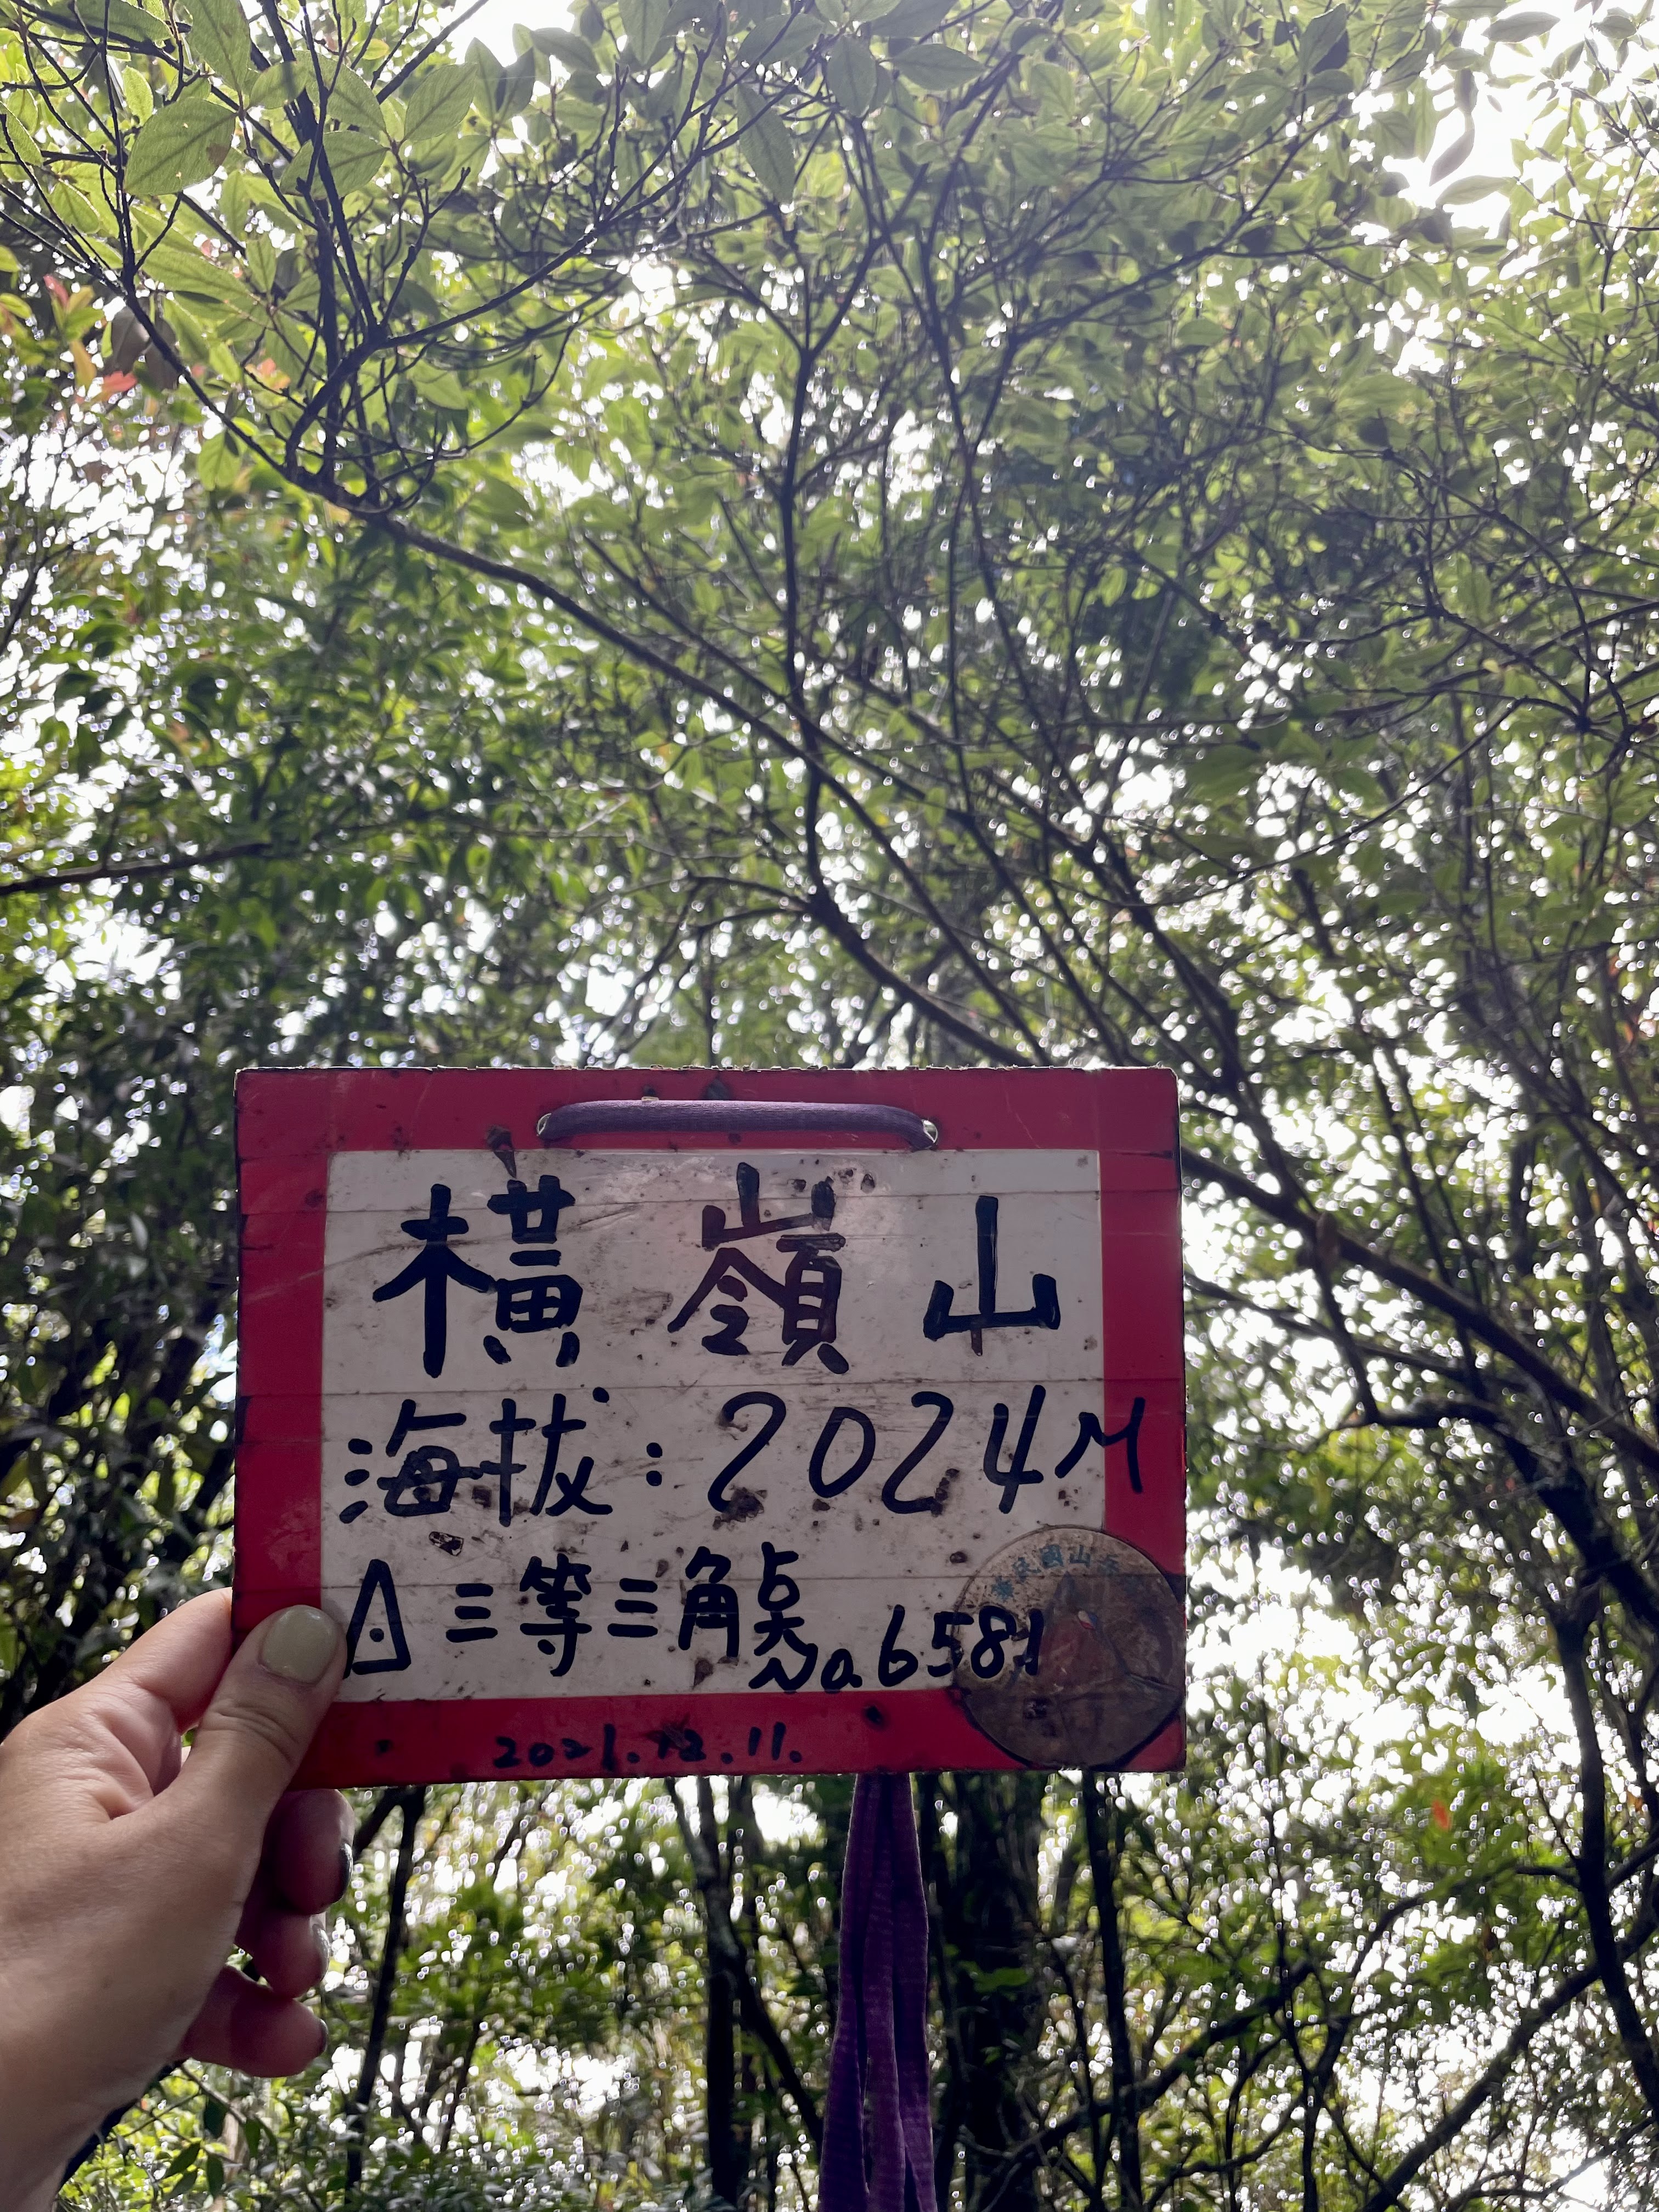 橫嶺山
海拔:2024M
△三等三角點No.6581
2021.12.11.